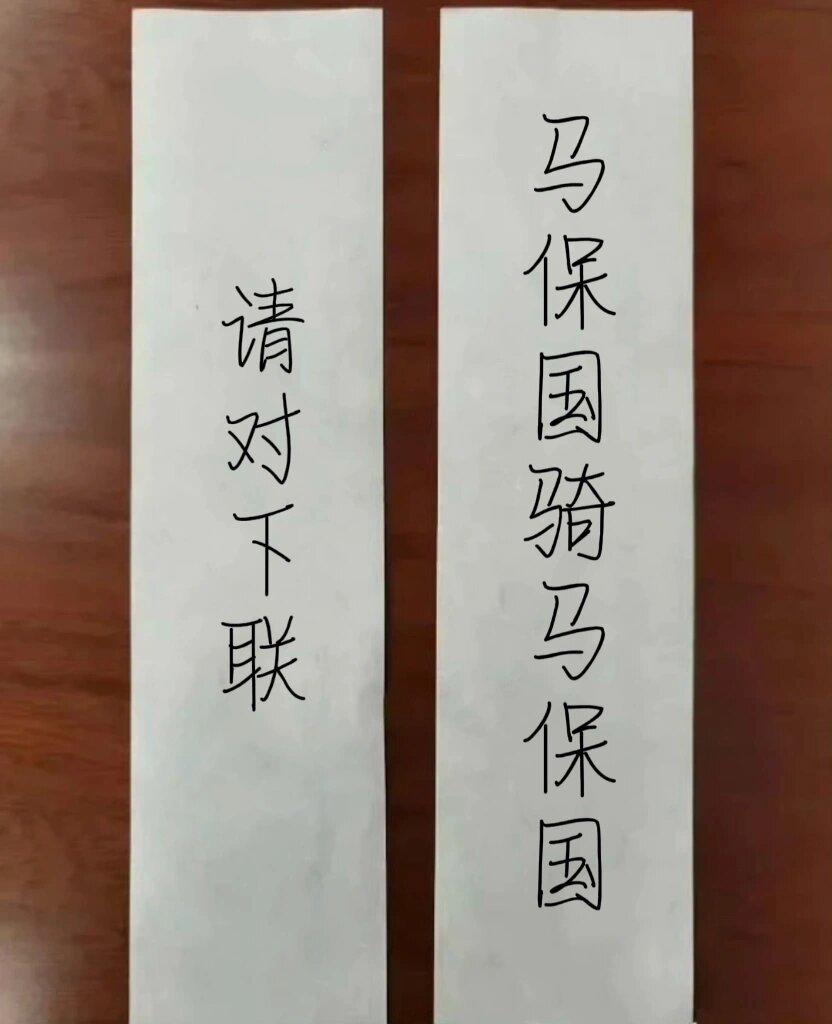 马保国骑马保国
请对下联